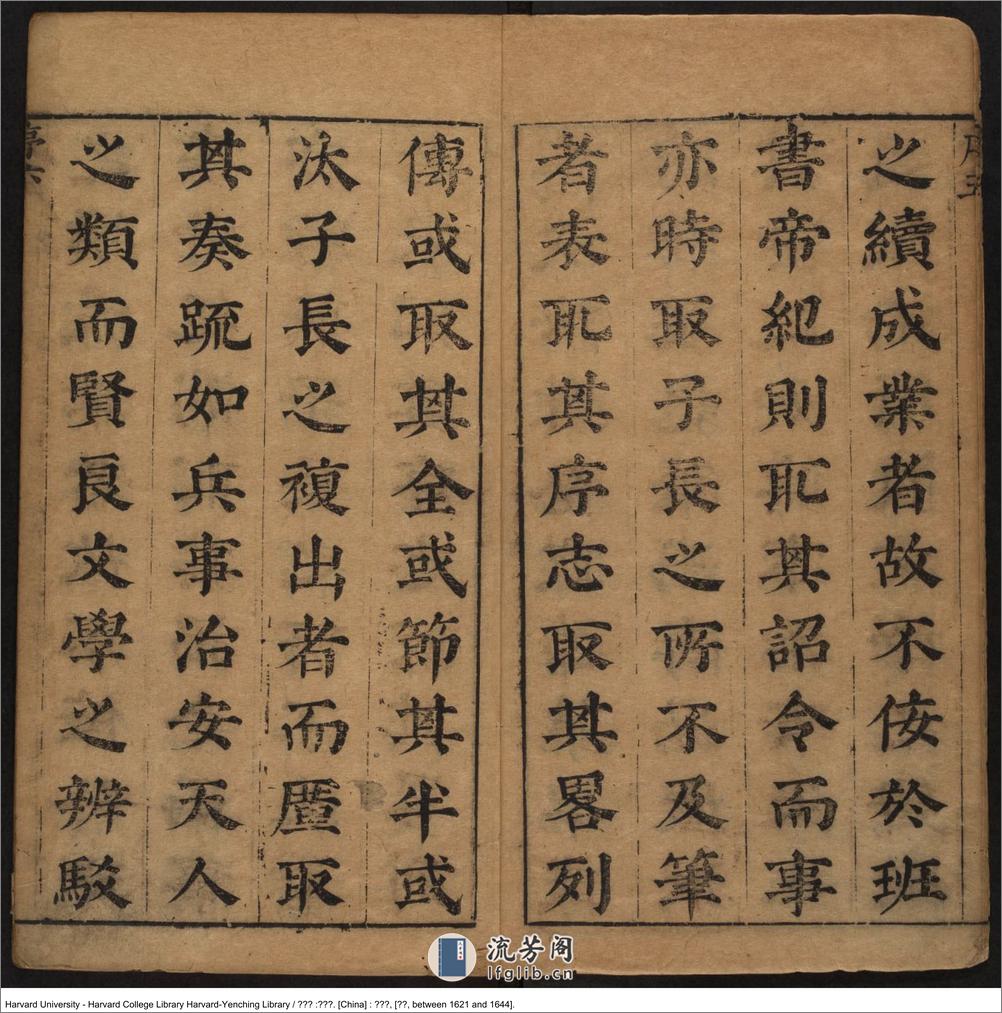 序五
之續成業者故不佞於班
書帝紀則取其詔令而事
亦時取子長之所不及筆
者表取其序志取其畧列
傳或取其全或節其半或
汰子長之複出者而厪取
其奏疏如兵事治安天人
之類而賢良文學之辨駁
序六
流芳阁
lfglib.cn
Harvard University - Harvard College Library Harvard-Yenching Library / ??? :???. [China] : ???, [??, between 1621 and 1644].